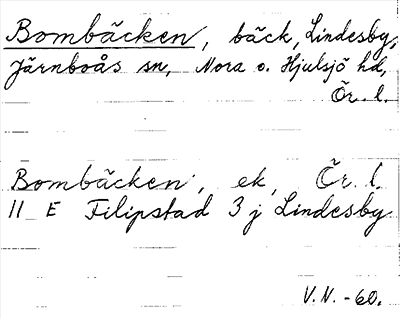 Bombäcken, bäck, Lindesby,
Järnboås sn, Nora o. Hjulsjö hd,
Ör. l.
Bombäcken, ek, Ör. l.
11 E Filipstad 3 j Lindesby
V.N. -60.